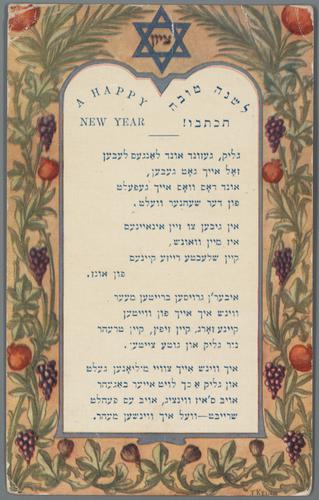 ציון
A HAPPY
NEW YEAR
לשנה טובה
תכתבו!
גליק, געזונד אונד לאנגעס לעבען
זאל אייך גאט געבען,
אונד דאס וואס אייך געפעלט
פון דער שעהנער וועלט.
אין גיבען צו זיין אינאיינעם
איז מיין וואונש,
קיין שלעכטע רייזע קיינעם
פון אונז.
איבער'ן גרויסען ברייטען מעער
ווינש איך אייך פון ווייטען
קיינע זארג, קיין זיפץ, קיין טרעהר
נור גליק און גוטע צייטען.
איך ווינש אייך צוויי מיליאנען געלט
און גליק א כך לויט אייער באגעהר
אויב ס'אין ווינציג, אויב עס פעהלט
שרייבט—וועל איך ווינשען מעהר.